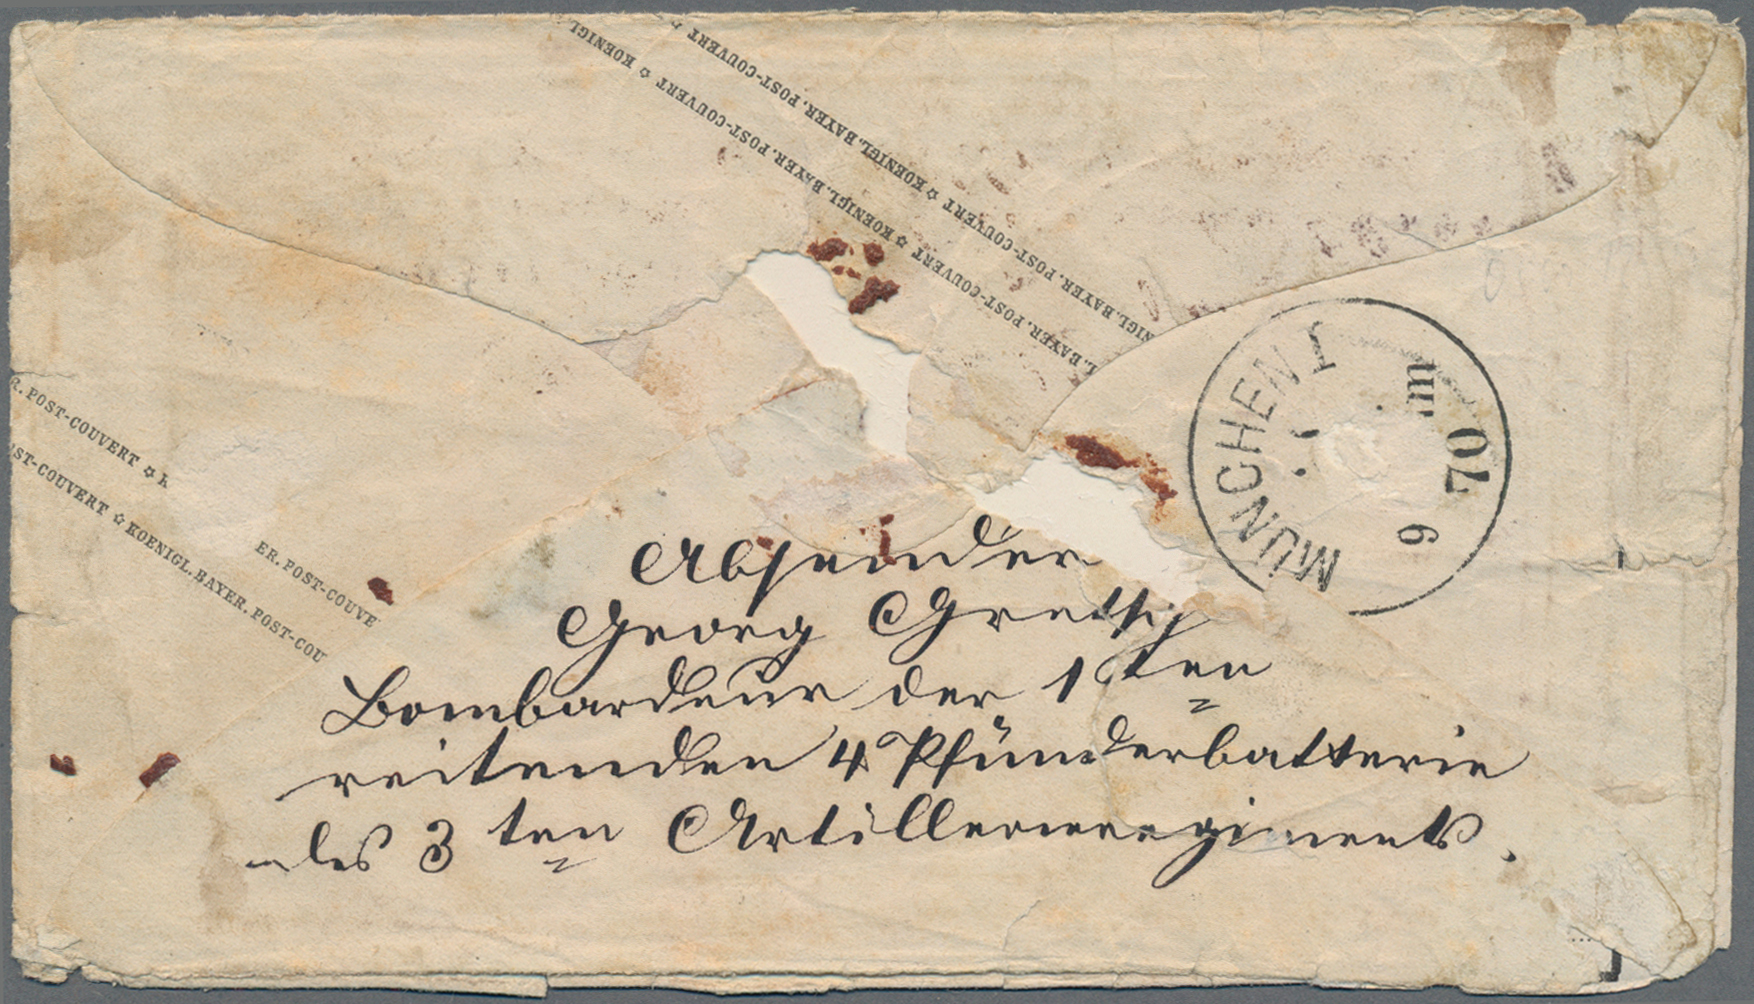 KOENIGL. BAYER. POST-COUVERT ☆ KOENIGL. BAYER. POST-COUVERT ☆ KOENIGL. BAYER. POST-COUVERT
L. BAYER. POST-COUVERT ☆ KOENIGL. BAYER. POST-COUVERT ☆ KOENIGL
R. POST-COUVERT ☆ K
ER. POST-COUVE
ST-COUVERT ☆ KOENIGL. BAYER. POST-COU
MÜNCHEN I
70
9
Absender
Georg
Bombardeur der 1 ten
reitenden 4 Pfünderbatterie
des 3 ten Artillerieregiments.